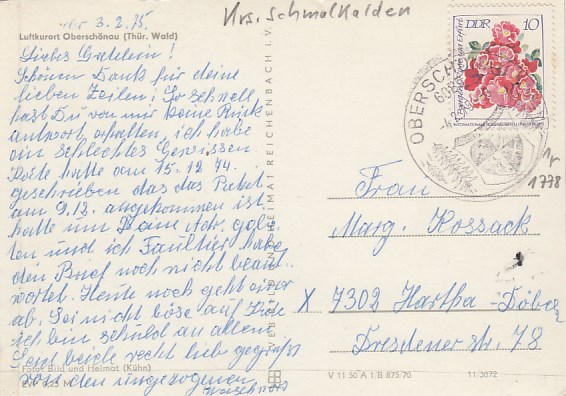 3.2.75
Krs. Schmalkalden
Luftkurort Oberschönau (Thür. Wald)
Liebes Gretelein!
Schönen Dank für deine
lieben Zeilen! So schnell
hast Du von mir keine Rück
antwort erhalten, ich habe
ein schlechtes Gewissen.
Karte hatte am 15.12.74.
geschrieben das das Paket
am 9.12. angekommen ist
hatte um Deine Adr. gebe-
ten und ich Faultier habe
den Brief noch nicht beant
wortet. Heute noch geht einer
ab. Sei nicht böse auf
ich bin schuld an allem
Seid beide recht lieb gegrüßt
von den ungezogenen
Foto: Bild und Heimat (Kühn)
M
VEB BILD UND HEIMAT REICHENBACH I. V.
DDR 10
OBERSCH
1778
Frau
Marg. Kossack
X 7302 Hartha-Döbeln
Dresdener str. 78
V 11 50 A 1/B 875/70
11 3072